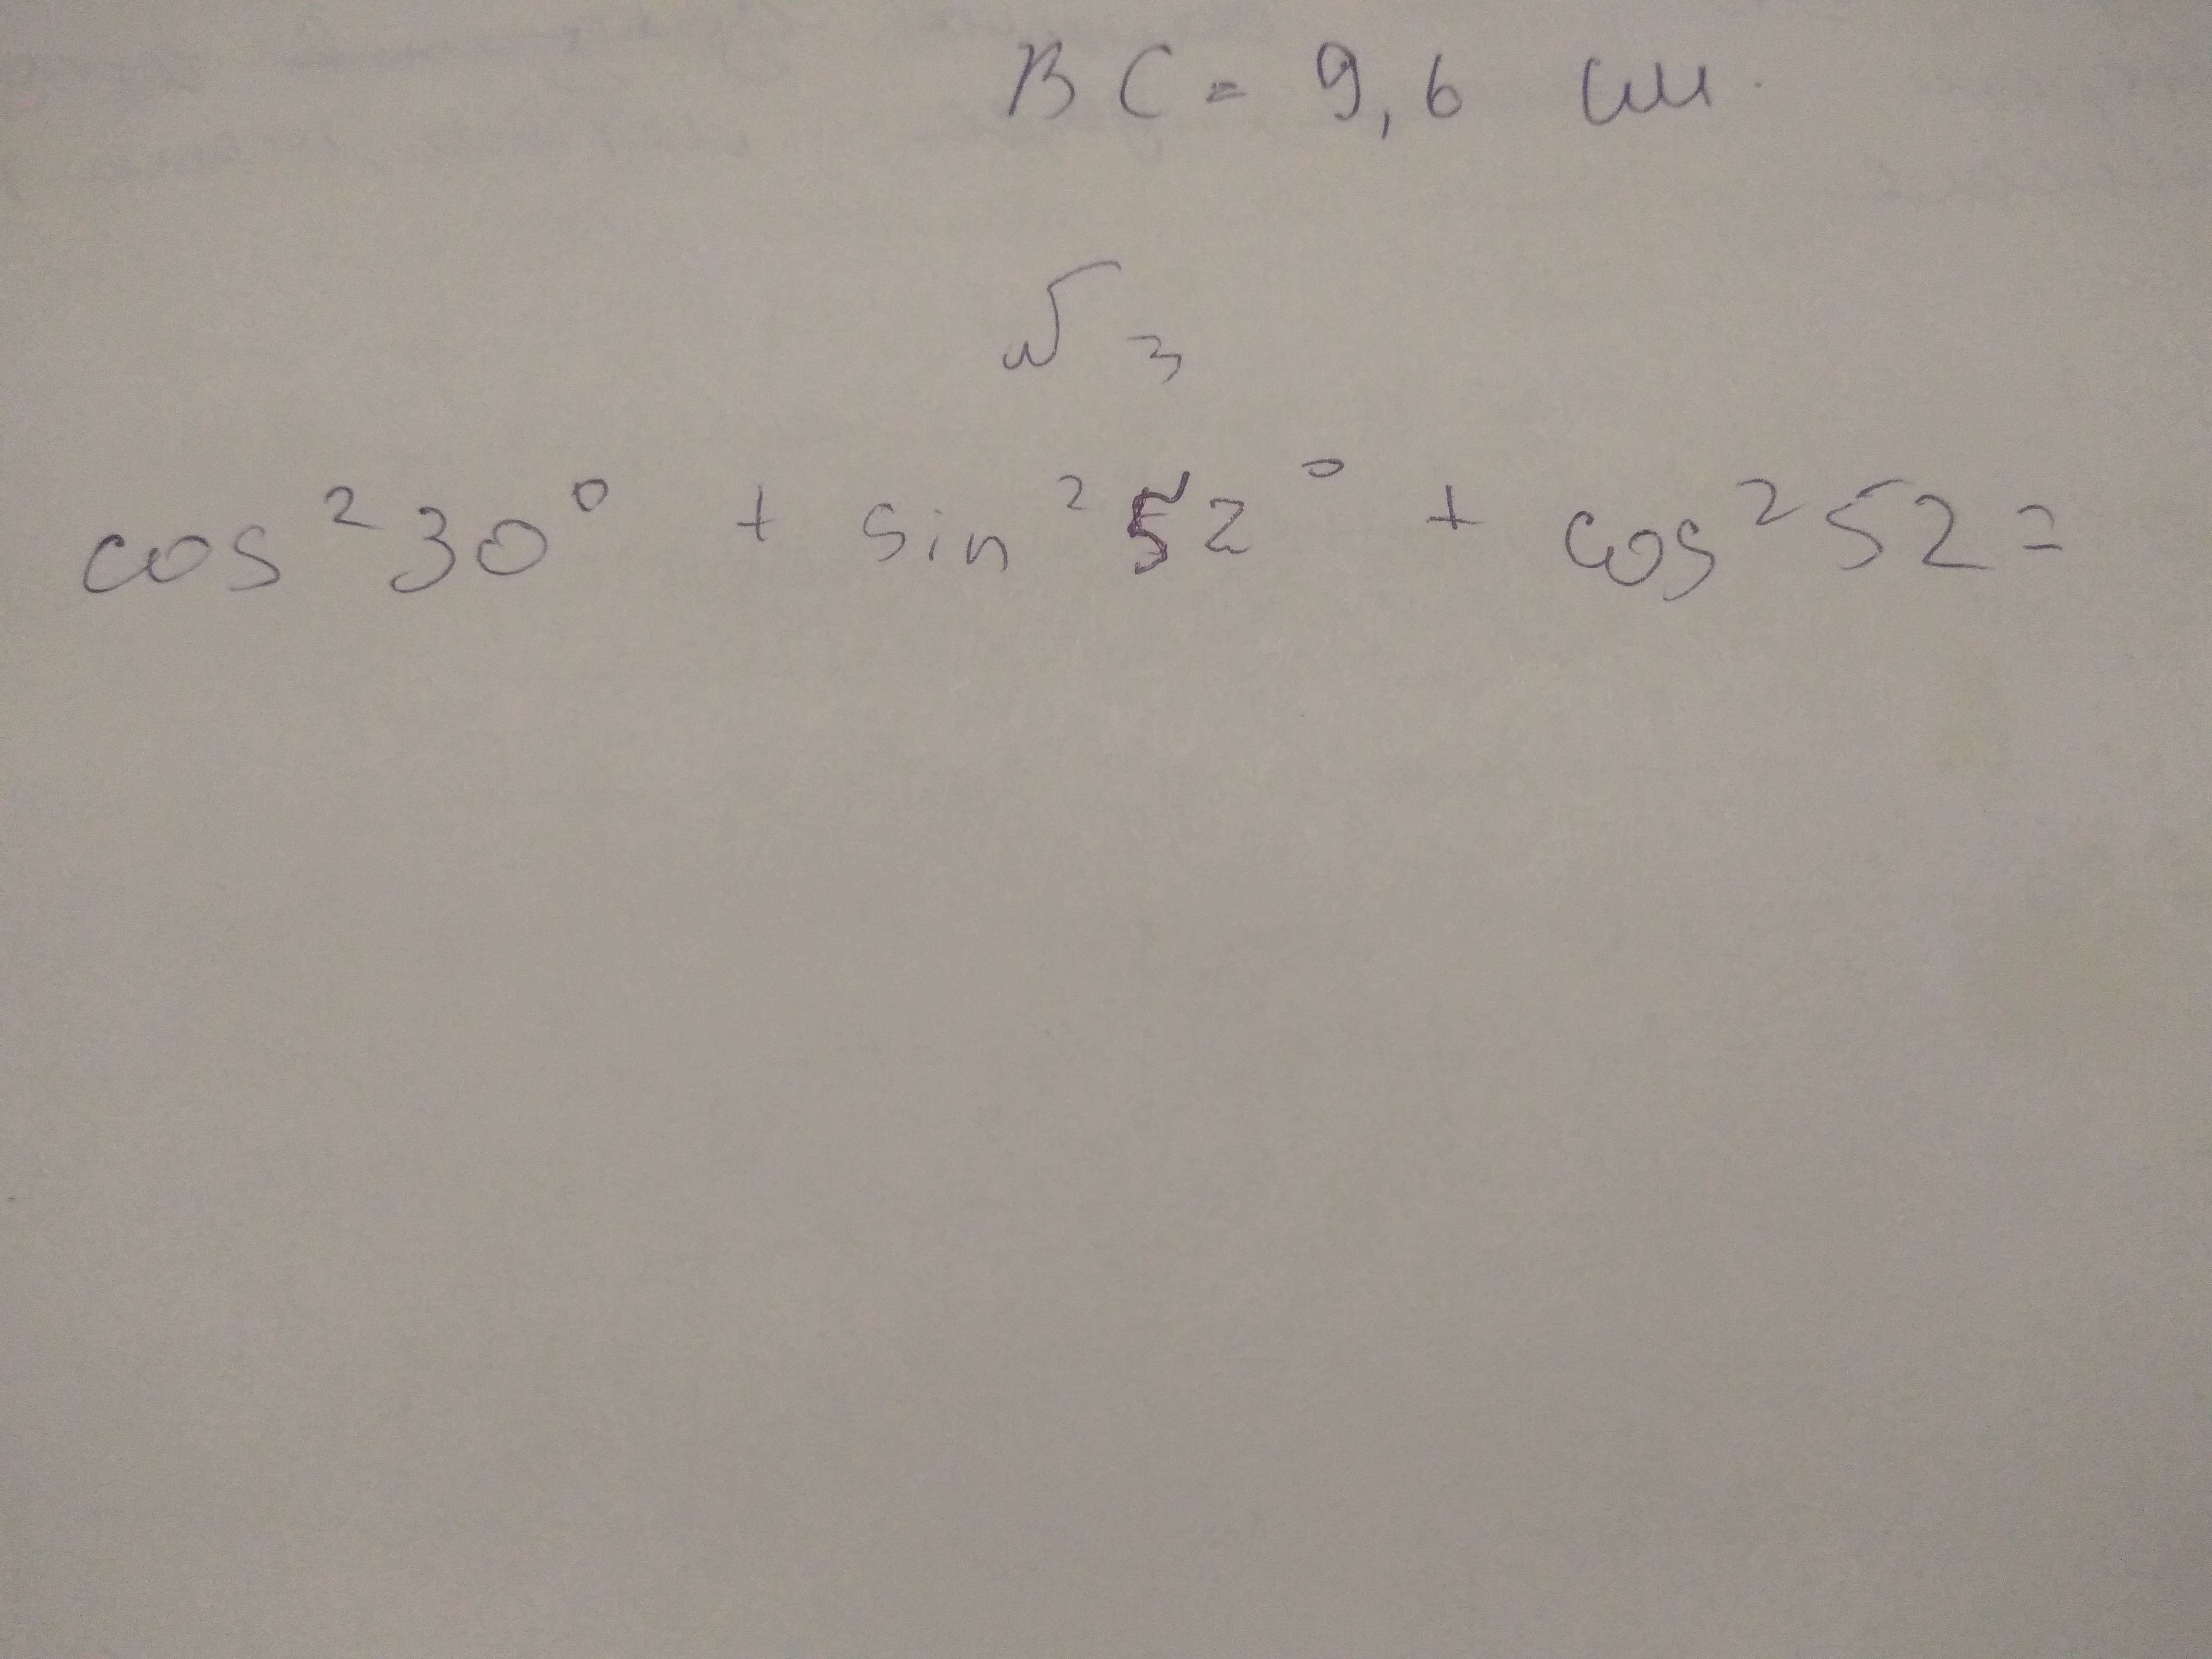 BC = 9,6 см.
№ 3
cos²30° + sin²52° + cos²52 =